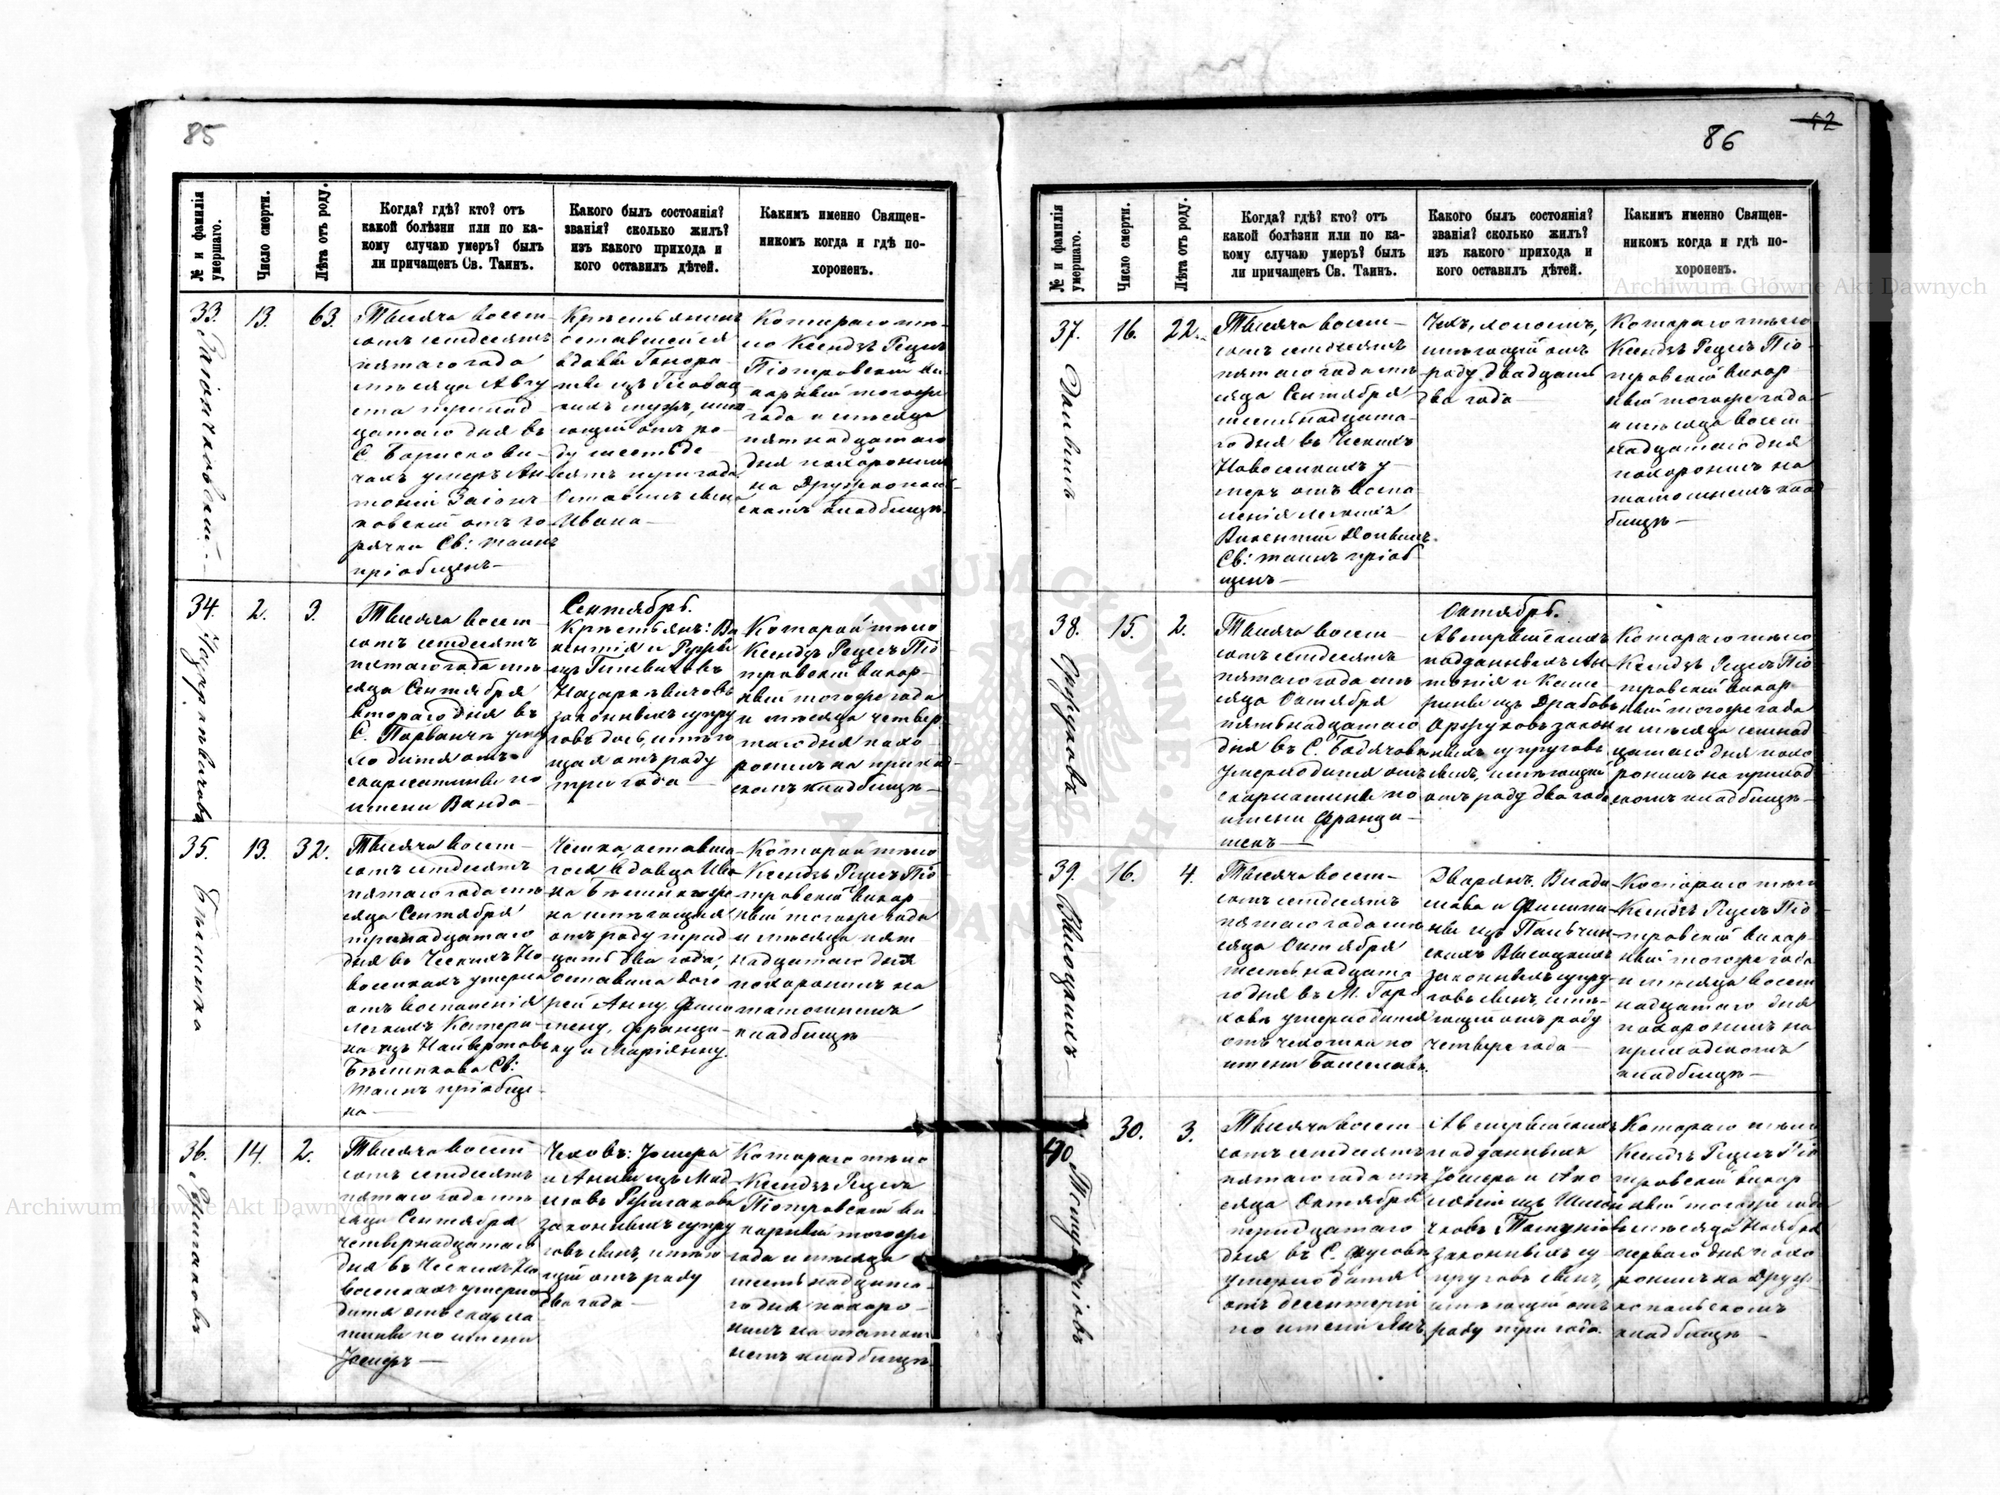 85
№ и фамилія умершаго.
Число смерти.
Лѣта отъ роду.
Когда? гдѣ? кто? отъ
какой болѣзни или по ка-
кому случаю умеръ? былъ
ли причащенъ Св. Таинъ.
Какого былъ состоянія?
званія? сколько жилъ?
изъ какого прихода и
кого оставилъ дѣтей.
Какимъ именно Священ-
никомъ когда и гдѣ по-
хороненъ.
33.
13.
63.
Тысяча восем-
сотъ семдесятъ
пятаго года
мѣсяца Авгу
ста тринад-
цатаго дня въ
С. Борискови-
чахъ умеръ Ан-
тоній
отъ го-
рячки Св: таинъ
пріобщенъ-
Крестьянинъ
оставшейся
вдовы Гоноро-
ты изъ
мужъ, имѣ
ющій отъ ро-
ду шестьде
сятъ три года
Оставилъ сына
Ивана-
Котораго тѣ-
ло Ксендзъ Рецел
Піотровскій ви-
карный тогоже
года и мѣсяца
пятнадцатаго
дня похоронилъ
на Дружкополь-
скомъ кладбищѣ.
34.
2.
3.
Тысяча восем-
сотъ семдесятъ
пятаго года мѣ
сяца Сентября
втораго дня въ
С. умер
ло дитя отъ
скарлатины по
имени Ванда-
Сентябрь.
Крестьянъ: Ви
кентія и
изъ
законныхъ супру
говъ дочь, имѣю
щая отъ роду
три года-
Которой тѣло
Ксендзъ Рецел Піо
тровскій викар-
ный тогоже года
и мѣсяца четвер
таго дня похо-
ронилъ на приход-
скомъ кладбищѣ-
35. Бѣлинка
13.
32.
Тысяча восем-
сотъ семдесятъ
пятаго года мѣ
сяца Сентября
тринадцатаго
дня въ Ческихъ Но
воселкахъ умерла
отъ воспаленія
легкихъ Катери-
на изъ
Св:
таинъ пріобще-
на-
Чешка, оставша-
гося вдовца Ива
на же-
на имѣющая
отъ роду трид
цать два года,
оставила доче
рей Анну,
мену, Францис-
ку и Маріянну.
Которой тѣло
Ксендзъ Рецел Піо
тровскій викар-
ный тогоже года
и мѣсяца пят
надцатаго дня
похоронилъ на
тамошнемъ
кладбищѣ
36.
14.
2.
Тысяча восем
сотъ семдесятъ
пятаго года мѣ
сяца Сентября
четвернадцатаго
дня въ Ческихъ Но
воселкахъ умерло
дитя отъ скарла-
тины по имени
Іосифъ-
Чеховъ: Іосифа
и Анны изъ
законныхъ супру
говъ сынъ, имѣю
щій отъ роду
два года-
Котораго тѣло
Ксендзъ Рецел
Піотровскій ви
карный тогоже
года и мѣсяца
шестнадцата-
го дня похоро-
нилъ на тамош
немъ кладбищѣ
86
42
№ и фамилія умершаго.
Число смерти.
Лѣта отъ роду.
Когда? гдѣ? кто? отъ
какой болѣзни или по ка-
кому случаю умеръ? былъ
ли причащенъ Св. Таинъ.
Какого былъ состоянія?
званія? сколько жилъ?
изъ какого прихода и
кого оставилъ дѣтей.
Какимъ именно Священ-
никомъ когда и гдѣ по-
хороненъ.
37.
16.
22.
Тысяча восем-
сотъ семдесятъ
пятаго года мѣ
сяца Сентября
шестнадцата-
го дня въ Ческихъ
Новоселкахъ у-
меръ отъ воспа-
ленія легкихъ
Викентій
Св: таинъ пріоб
щенъ-
Чехъ, холостъ,
имѣющій отъ
роду двадцать
два года-
Котораго тѣло
Ксендзъ Рецел Піо-
тровскій викар-
ный тогоже года
и мѣсяца восем-
надцатаго дня
похоронилъ на
тамошнемъ клад
бищѣ-
38.
15.
2.
Тысяча восем-
сотъ семдесятъ
пятаго года мѣ
сяца Октября
пятьнадцатаго
дня въ С.
умерло дитя отъ
скарлатины по
имени Францы-
шекъ-
Октябрь.
Австрійскихъ
подданныхъ Ан
тонія и
изъ
закон
ныхъ супруговъ
сынъ, имѣющій
отъ роду два года
Котораго тѣло
Ксендзъ Рецел Піо
тровскій викар
ный тогоже года
и мѣсяца семнад
цатаго дня похо
ронилъ на приход
скомъ кладбищѣ-
39. Высоцкихъ
16.
4.
Тысяча восем-
сотъ семдесятъ
пятаго года мѣ
сяца Октября
шестьнадцата
го дня въ М. Горо
ховѣ умерло дитя
отъ чахотки по
имени Болеславъ.
Дворянъ: Влади
слава и Филипи
ны изъ
Высоцкихъ
законныхъ супру
говъ сынъ, имѣ-
ющій отъ роду
четыре года-
Котораго тѣло
Ксендзъ Рецел Піо
тровскій викар-
ный тогоже года
и мѣсяца восем
надцатаго дня
похоронилъ на
приходскомъ
кладбищѣ-
40
30.
3.
Тысяча восем-
сотъ семдесятъ
пятаго года мѣ
сяца Октября
тридцатаго
дня въ С.
умерло дитя
отъ десентеріи
по имени Янъ
Австрійскихъ
подданныхъ
Іосифа и Апо
лоніи изъ
законныхъ су-
пруговъ сынъ,
имѣющій отъ
роду три года.
Котораго тѣло
Ксендзъ Рецел Піо
тровскій викар
ный тогоже года
и мѣсяца Ноября
перваго дня похо
ронилъ на Друж-
копольскомъ
кладбищѣ-
Archiwum Główne Akt Dawnych
Archiwum Główne Akt Dawnych
ARCHIWUM GŁÓWNE AKT DAWNYCH